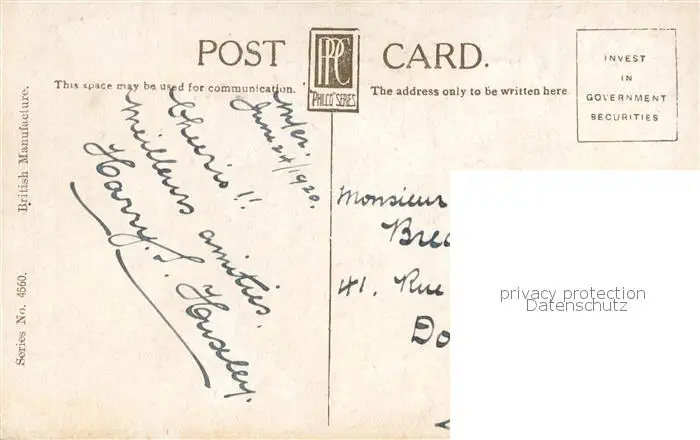 POST CARD.
PRC
"PHILCO" SERIES
This space may be used for communication.
The address only to be written here
INVEST
IN
GOVERNMENT
SECURITIES
British Manufacture.
Series No. 4560.
June 24/1920.
Cheerio!!
Meilleurs amities.
Harry. S.
Monsieur
Brec
41. Rue
Do
privacy protection
Datenschutz